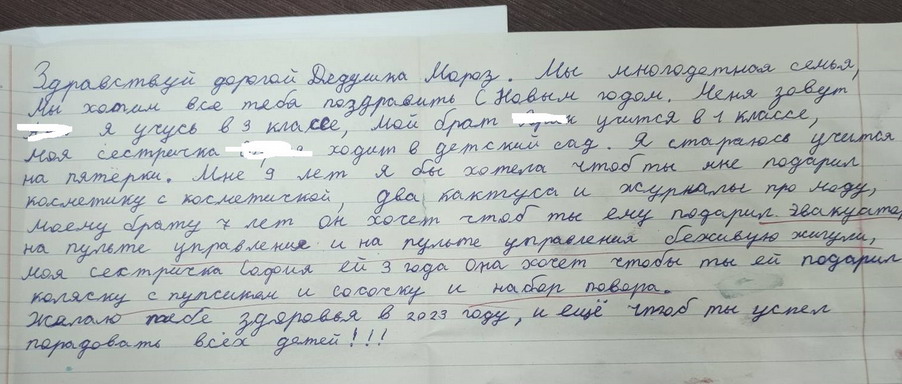 Здравствуй дорогой Дедушка Мороз. Мы многодетная семья,
Мы хотим все тебя поздравить С Новым годом. Меня зовут
я учусь в 3 классе, Мой брат учится в 1 классе,
моя сестричка ходит в детский сад. Я стараюсь учится
на пятёрки. Мне 9 лет я бы хотела чтоб ты мне подарил
косметику с косметичкой, два кактуса и журналы про моду,
моему брату 7 лет он хочет чтоб ты ему подарил эвакуатор,
на пульте управления и на пульте управления беживую жигули,
моя сестричка София ей 3 года она хочет чтобы ты ей подарил
коляску с пупсиком и сосочку и набор повора.
Желаю тебе здоровья в 2023 году, и ещё чтоб ты успел
порадовать всех детей!!!